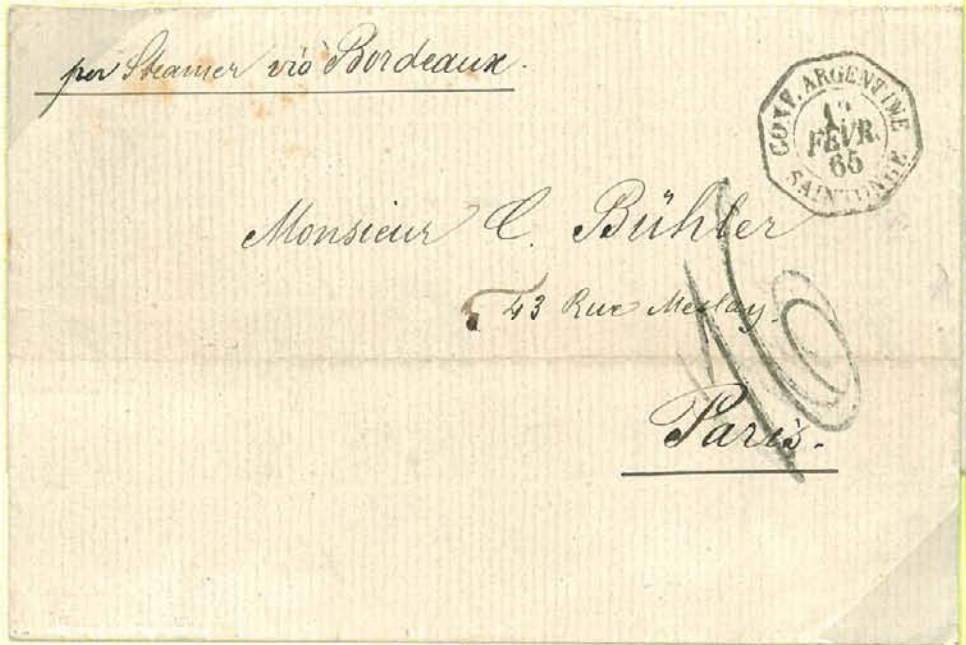 per Steamer via Bordeaux.
CONF. ARGENTINE
FEVR.
65
SAINTONGE
Monsieur C. Bühler
43 Rue Meslay.
16
Paris.